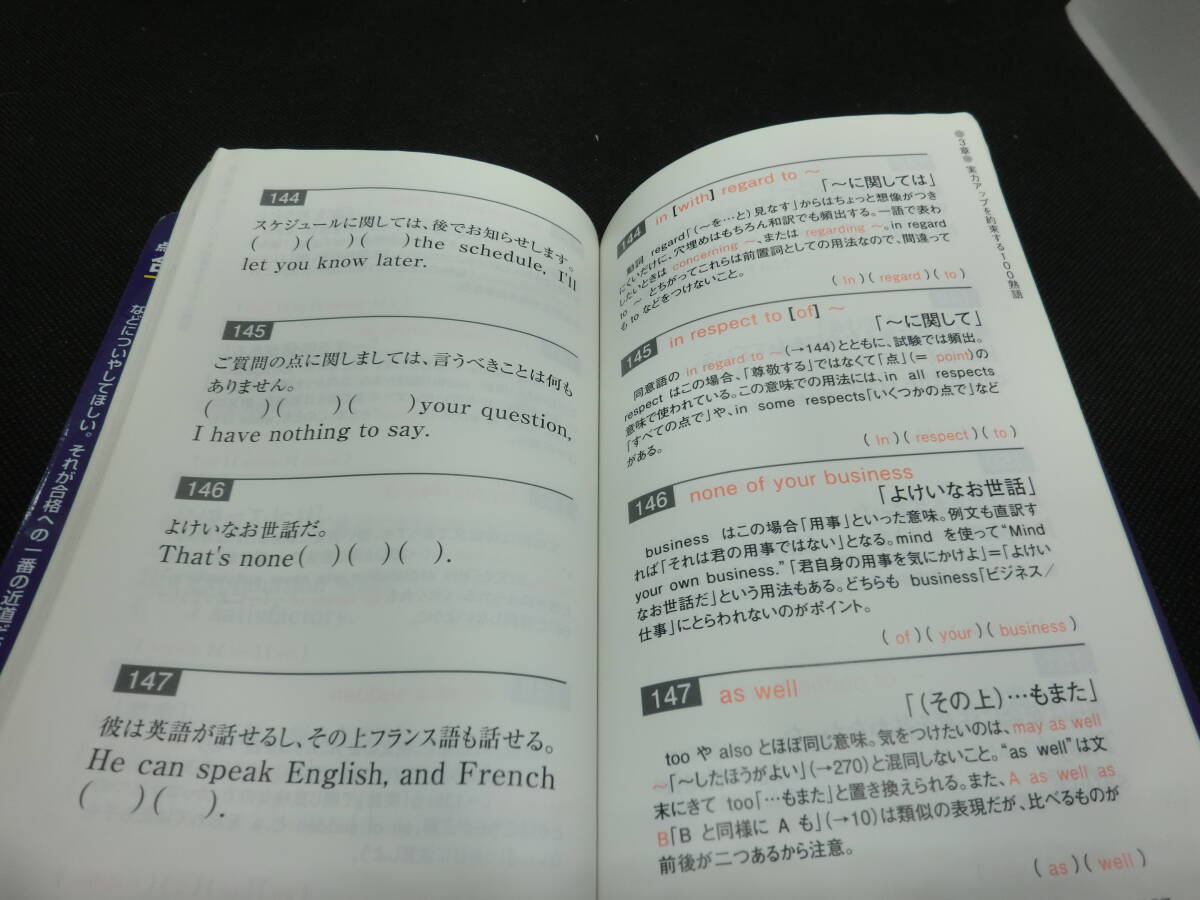 144
スケジュールに関しては、後でお知らせします。
(　)(　)(　)the schedule, I'll
let you know later.
145
ご質問の点に関しましては、言うべきことは何も
ありません。
(　)(　)(　)your question,
I have nothing to say.
146
よけいなお世話だ。
That's none(　)(　)(　).
147
彼は英語が話せるし、その上フランス語も話せる。
He can speak English, and French
(　)(　).
3章 実力アップを約束する100熟語
144 in [with] regard to ～
「～に関しては」
動詞 regard「(～を…と)見なす」からはちょっと想像がつき
にくいだけに、穴埋めはもちろん和訳でも頻出する。一語で表わ
したいときは concerning ～、または regarding ～。in regard
to ～ とちがってこれらは前置詞としての用法なので、間違って
も to などをつけないこと。
( In )( regard )( to )
145 in respect to [of] ～
「～に関して」
同意語の in regard to ～(→144)とともに、試験では頻出。
respect はこの場合、「尊敬する」ではなくて「点」(= point)の
意味で使われている。この意味での用法には、in all respects
「すべての点で」や、in some respects「いくつかの点で」など
がある。
( In )( respect )( to )
146 none of your business
「よけいなお世話」
business はこの場合「用事」といった意味。例文も直訳す
れば「それは君の用事ではない」となる。mind を使って“Mind
your own business.”「君自身の用事を気にかけよ」=「よけい
なお世話だ」という用法もある。どちらも business「ビジネス/
仕事」にとらわれないのがポイント。
( of )( your )( business )
147 as well
「(その上)…もまた」
too や also とほぼ同じ意味。気をつけたいのは、may as well
～「～したほうがよい」(→270)と混同しないこと。“as well”は文
末にきて too「…もまた」と置き換えられる。また、A as well as
B「B と同様に A も」(→10)は類似の表現だが、比べるものが
前後が二つあるから注意。
( as )( well )
などについやしてほしい。それが合格への一番の近道だ